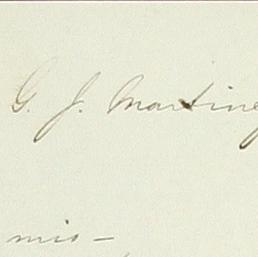 G. J. Martine
mio —